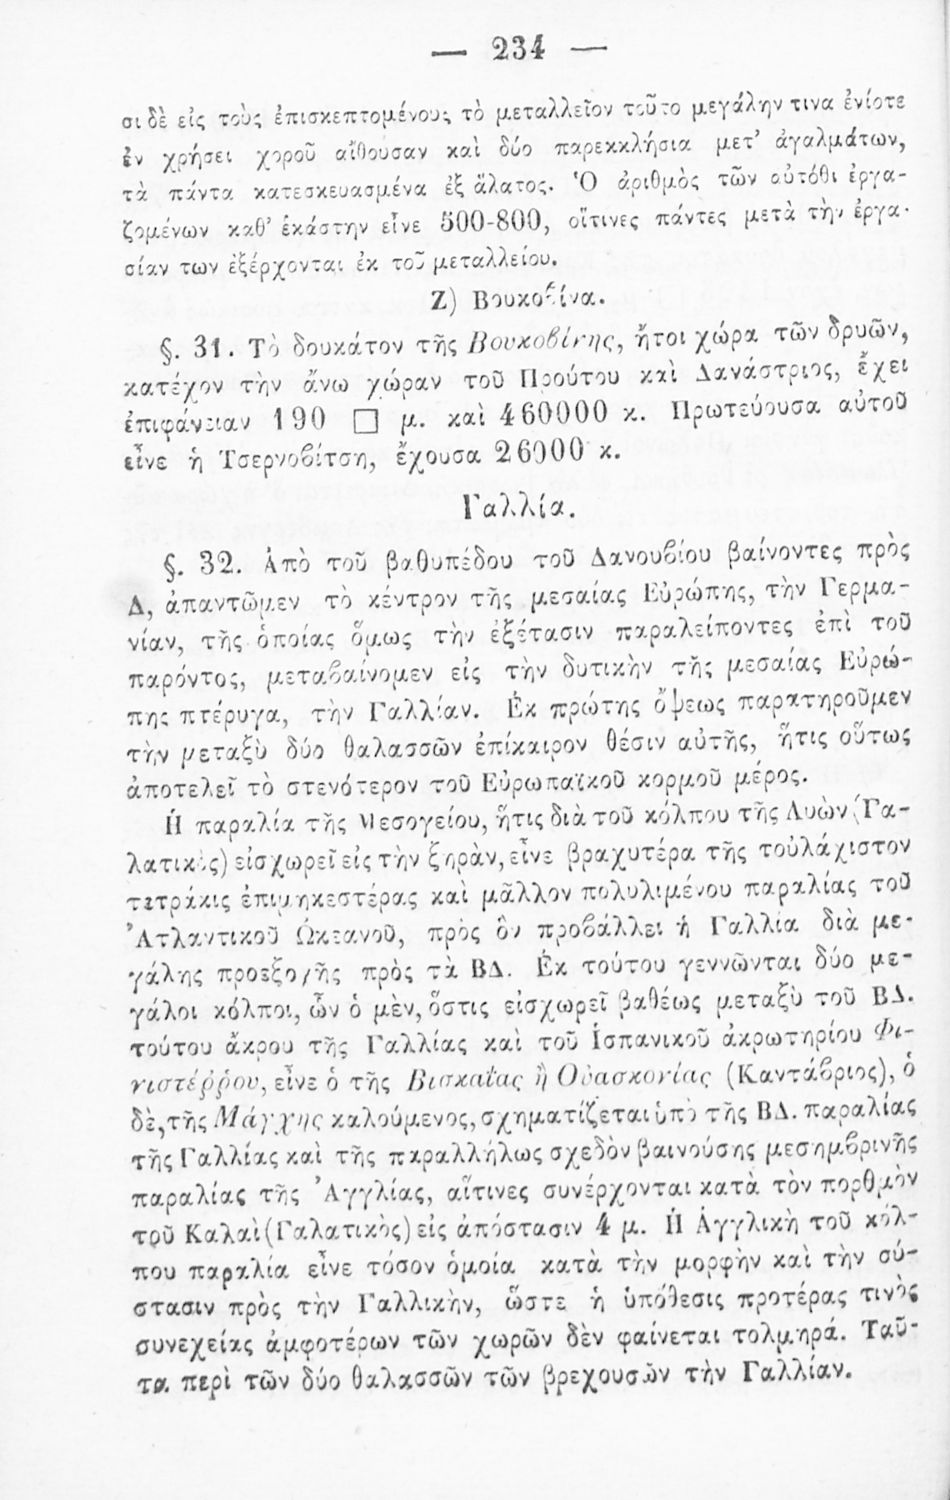 — 234 —
σι δὲ εἰς τοὺς ἐπισκεπτομένους τὸ μεταλλεῖον τοῦτο μεγάλην τινα ἐνίοτε
ἐν χρήσει χοροῦ αἴθουσαν καὶ δύο παρεκκλήσια μετ' ἀγαλμάτων,
τὰ πάντα κατεσκευασμένα ἐξ ἅλατος. Ὁ ἀριθμὸς τῶν αὐτόθι ἐργα-
ζομένων καθ' ἑκάστην εἶνε 500-800, οἵτινες πάντες μετὰ τὴν ἐργα-
σίαν των ἐξέρχονται ἐκ τοῦ μεταλλείου.
Ζ) Βουκοβίνα.
§. 31. Τὸ δουκάτον τῆς Βουκοβίνης, ἤτοι χώρα τῶν δρυῶν,
κατέχον τὴν ἄνω χώραν τοῦ Προύτου καὶ Δανάστριος, ἔχει
ἐπιφάνειαν 190 □ μ. καὶ 460000 κ. Πρωτεύουσα αὐτοῦ
εἶνε ἡ Τσερνοβίτση, ἔχουσα 26000 κ.
Γαλλία.
§. 32. Ἀπὸ τοῦ βαθυπέδου τοῦ Δανουβίου βαίνοντες πρὸς
Δ, ἀπαντῶμεν τὸ κέντρον τῆς μεσαίας Εὐρώπης, τὴν Γερμα-
νίαν, τῆς ὁποίας ὅμως τὴν ἐξέτασιν παραλείποντες ἐπὶ τοῦ
παρόντος, μεταβαίνομεν εἰς τὴν δυτικὴν τῆς μεσαίας Εὐρώ-
πης πτέρυγα, τὴν Γαλλίαν. Ἐκ πρώτης ὄψεως παρατηροῦμεν
τὴν μεταξὺ δύο θαλασσῶν ἐπίκαιρον θέσιν αὐτῆς, ἥτις οὕτως
ἀποτελεῖ τὸ στενότερον τοῦ Εὐρωπαϊκοῦ κορμοῦ μέρος.
Ἡ παραλία τῆς Μεσογείου, ἥτις διὰ τοῦ κόλπου τῆς Λυὼν (Γα-
λατικὸς) εἰσχωρεῖ εἰς τὴν ξηρὰν, εἶνε βραχυτέρα τῆς τοὐλάχιστον
τετράκις ἐπιμηκεστέρας καὶ μᾶλλον πολυλιμένου παραλίας τοῦ
Ἀτλαντικοῦ Ὠκεανοῦ, πρὸς ὃν προβάλλει ἡ Γαλλία διὰ με-
γάλης προεξοχῆς πρὸς τὰ ΒΔ. Ἐκ τούτου γεννῶνται δύο με-
γάλοι κόλποι, ὧν ὁ μὲν, ὅστις εἰσχωρεῖ βαθέως μεταξὺ τοῦ ΒΔ.
τούτου ἄκρου τῆς Γαλλίας καὶ τοῦ Ἱσπανικοῦ ἀκρωτηρίου Φι-
νιστέῤῥου, εἶνε ὁ τῆς Βισκαΐας ἢ Οὐασκονίας (Καντάβριος), ὁ
δὲ, τῆς Μάγχης καλούμενος, σχηματίζεται ὑπὸ τῆς ΒΔ. παραλίας
τῆς Γαλλίας καὶ τῆς παραλλήλως σχεδὸν βαινούσης μεσημβρινῆς
παραλίας τῆς Ἀγγλίας, αἵτινες συνέρχονται κατὰ τὸν πορθμὸν
τοῦ Καλαὶ (Γαλατικὸς) εἰς ἀπόστασιν 4 μ. Ἡ Ἀγγλικὴ τοῦ κόλ-
που παραλία εἶνε τόσον ὁμοία κατὰ τὴν μορφὴν καὶ τὴν σύ-
στασιν πρὸς τὴν Γαλλικὴν, ὥστε ἡ ὑπόθεσις προτέρας τινὸς
συνεχείας ἀμφοτέρων τῶν χωρῶν δὲν φαίνεται τολμηρά. Ταῦ-
τα περὶ τῶν δύο θαλασσῶν τῶν βρεχουσῶν τὴν Γαλλίαν.